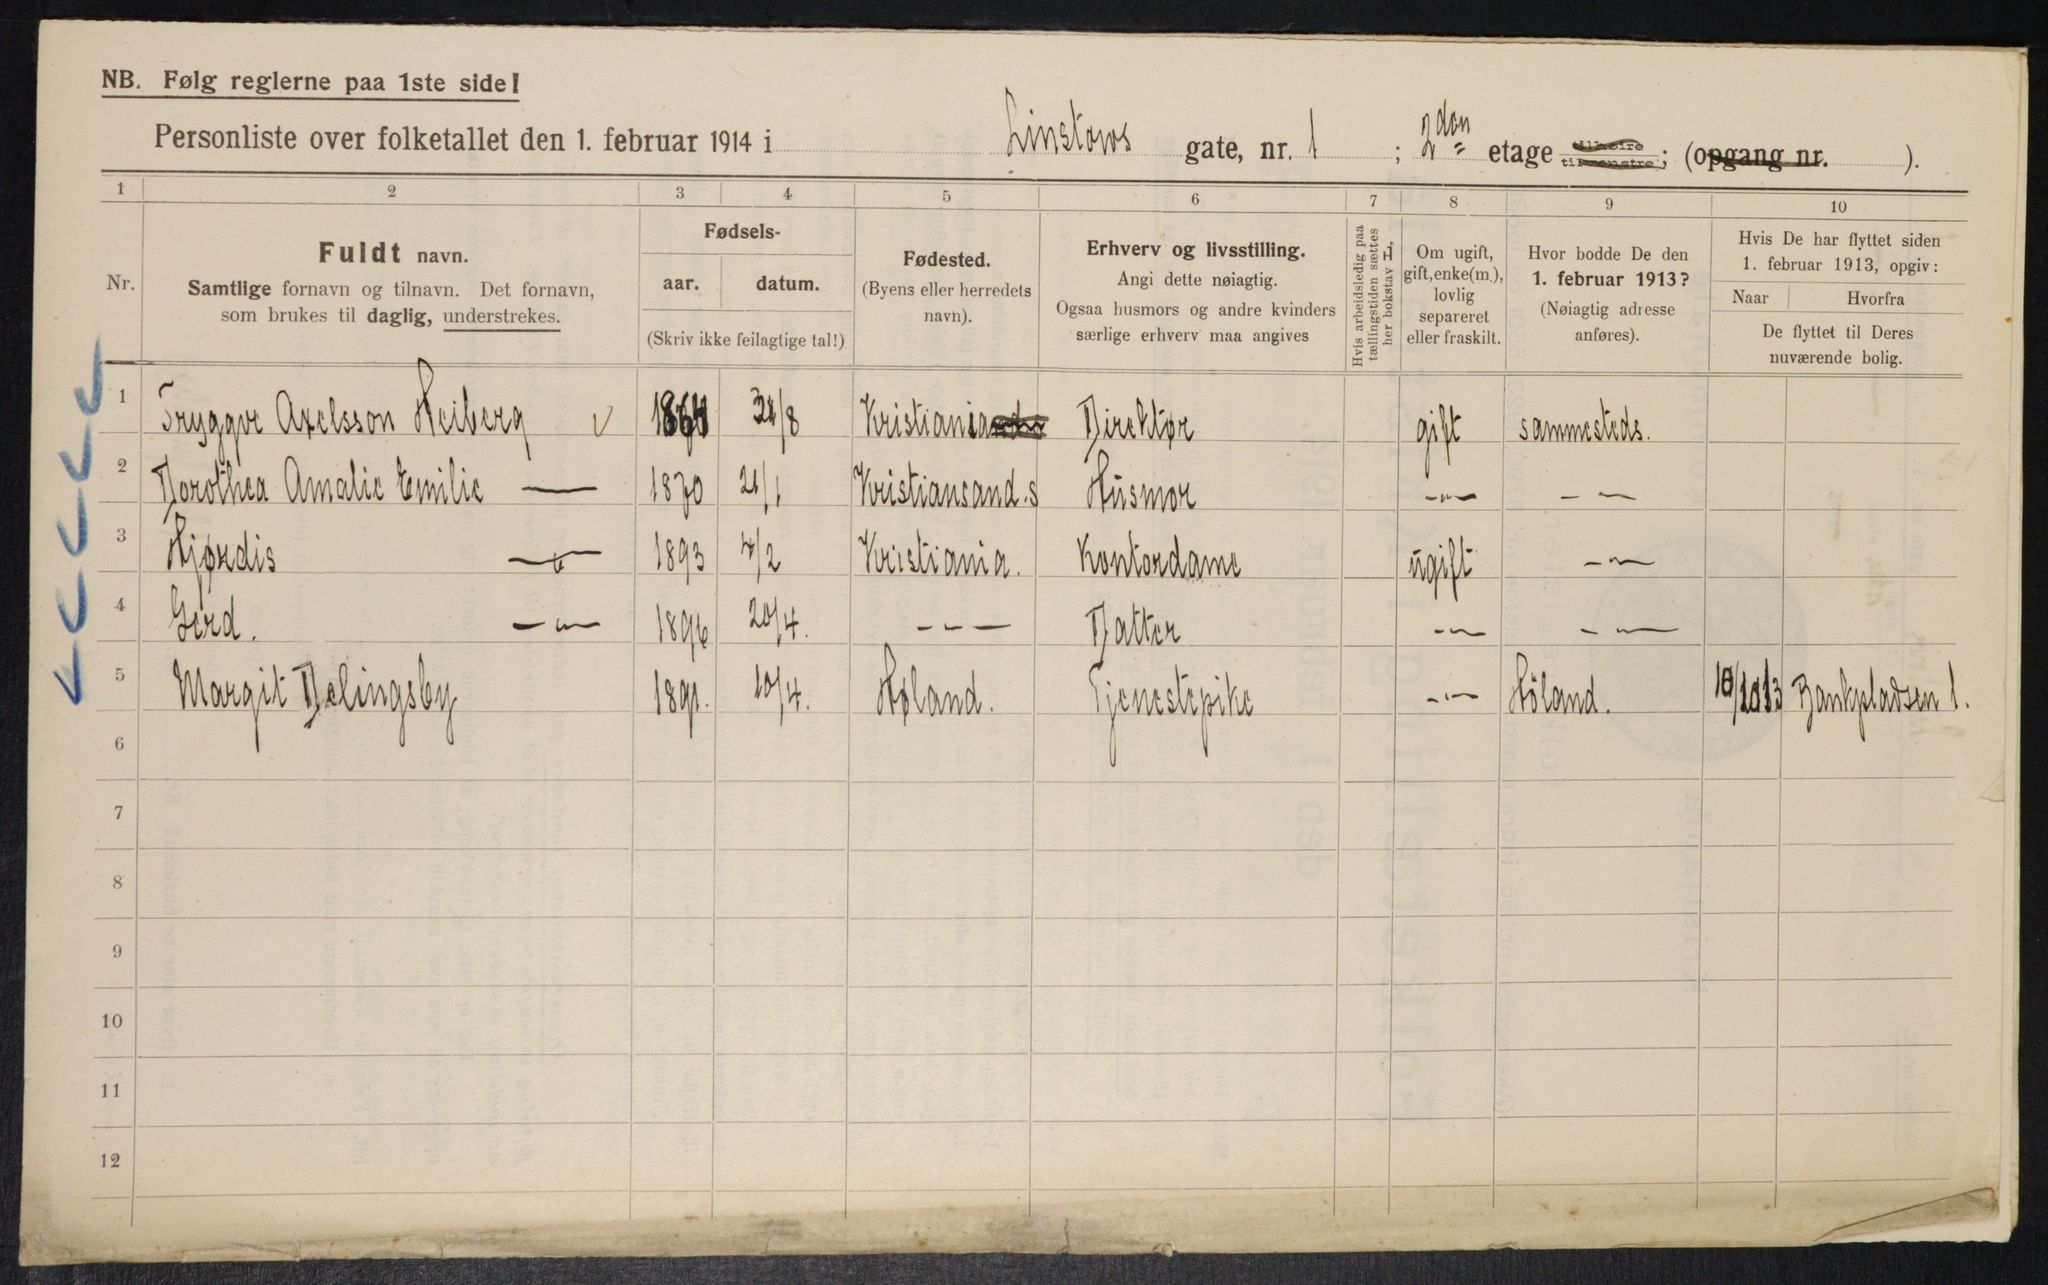 NB. Følg reglerne paa 1ste side!
Personliste over folketallet den 1. februar 1914 i Linstows gate, nr. 1 ; 2den etage til høire til venstre ; (opgang nr. ).
1 2 3 4 5 6 7 8 9 10
Nr.
Fuldt navn.
Samtlige fornavn og tilnavn. Det fornavn,
som brukes til daglig, understrekes.
Fødsels-
aar. datum.
(Skriv ikke feilagtige tal!)
Fødested.
(Byens eller herredets
navn).
Erhverv og livsstilling.
Angi dette nøiagtig.
Ogsaa husmors og andre kvinders
særlige erhverv maa angives
Hvis arbeidsledig paa
tællingstiden sættes
her bokstav L,
Om ugift,
gift, enke(m.),
lovlig
separeret
eller fraskilt.
Hvor bodde De den
1. februar 1913?
(Nøiagtig adresse
anføres).
Hvis De har flyttet siden
1. februar 1913, opgiv:
Naar Hvorfra
De flyttet til Deres
nuværende bolig.
1 Tryggve Axelsson Heiberg v /8 Kristiania Direktør gift sammesteds.
2 Dorothea Amalie Emilie — 1870 21/1 Kristiansand.s Husmor -"- -"-
3 Hjørdis -"- 1893 4/2 Kristiania. Kontordame ugift -"-
4 Gerd. -"- 1896 20/4. --- Datter -"- -"-
5 Margit Delingsby 1891. 10/4. Høland. Tjenestepike -"- Høland. 10/10 13 Bankpladsen 1.
6
7
8
9
10
11
12